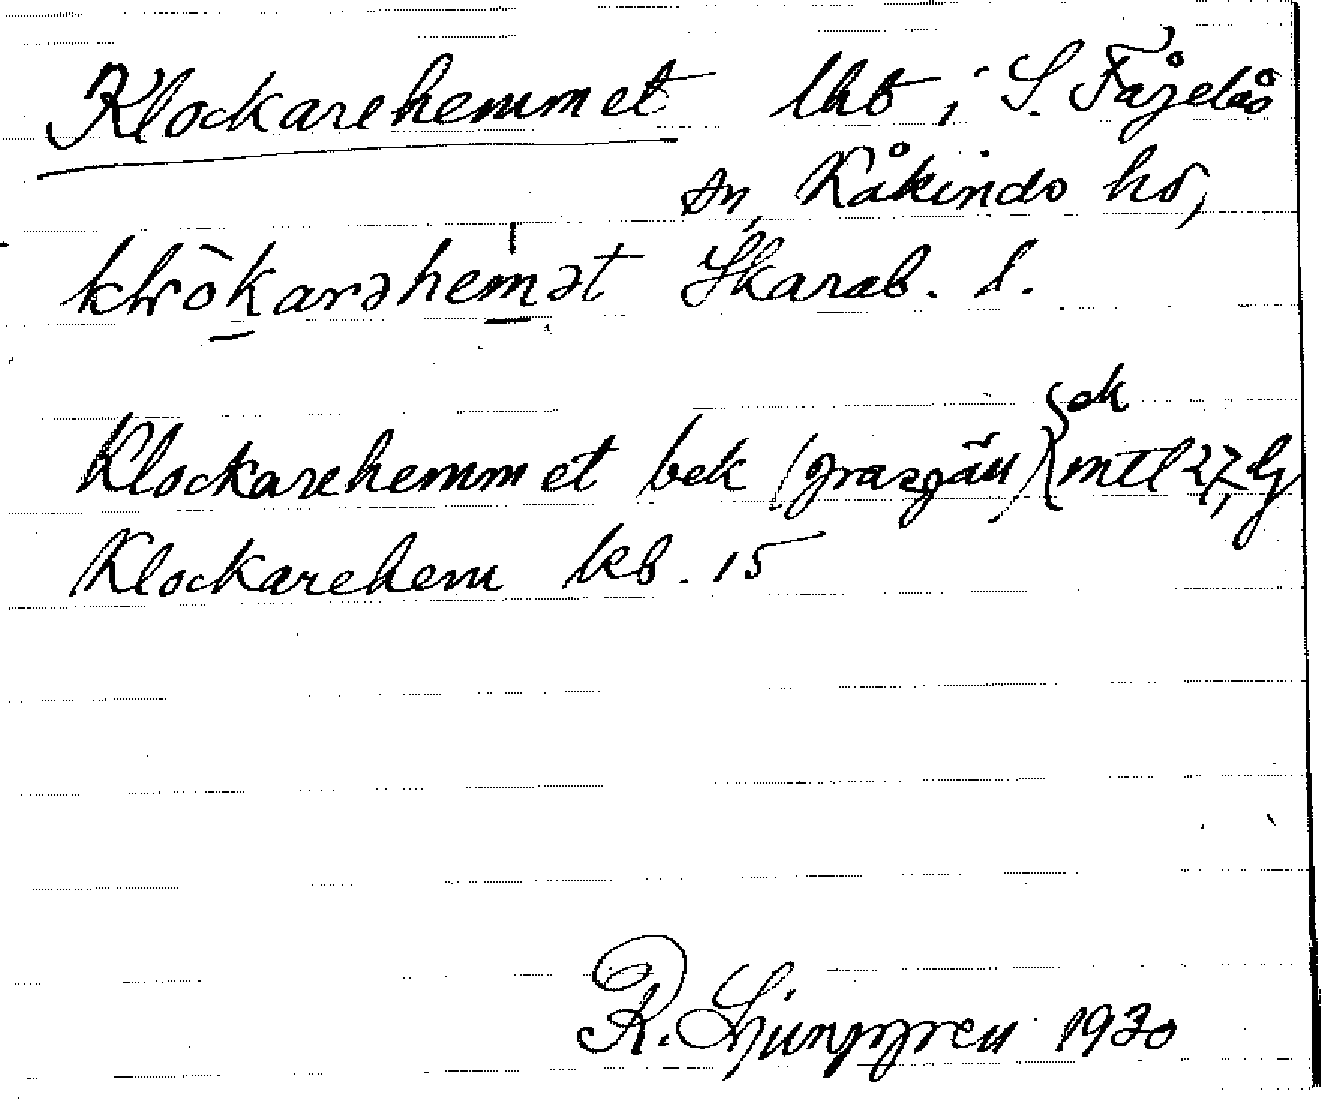 Klockarehemmet lht i S. Fågelås
sn, Kåkinds hd,
klrokarəhemət Skarab. l.
Klockarehemmet bek (grasgäu) ek mtl 27, lj
Klockarehem kb. 15
R. Ljunggren 1930